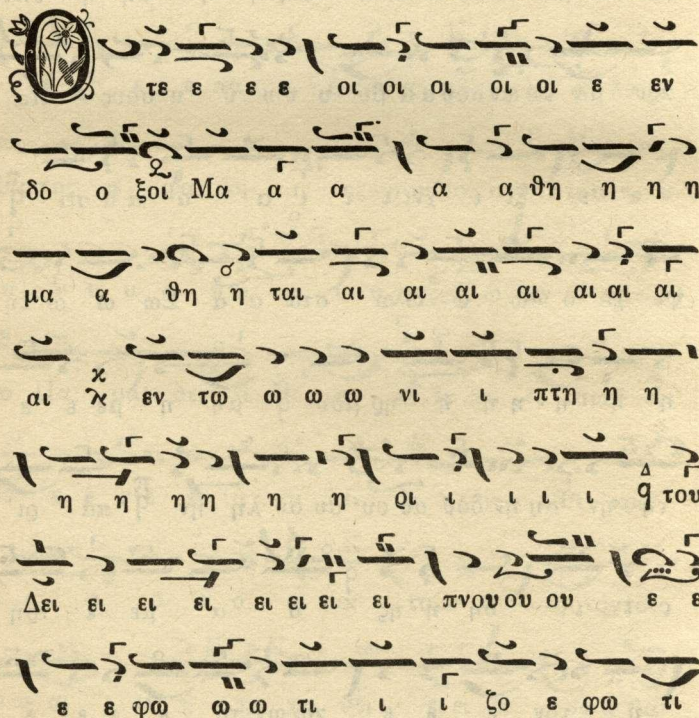 Ο τε ε ε ε οι οι οι οι οι ε εν
δο ο ξοι Μα α α α α θη η η η
μα α θη η ται αι αι αι αι αι αι αι
αι εν τω ω ω ω νι ι πτη η η
η η η η η η ρι ι ι ι ι του
Δει ει ει ει ει ει ει ει πνου ου ου ε ε
ε ε φω ω ω τι ι ι ζο ε φω τι